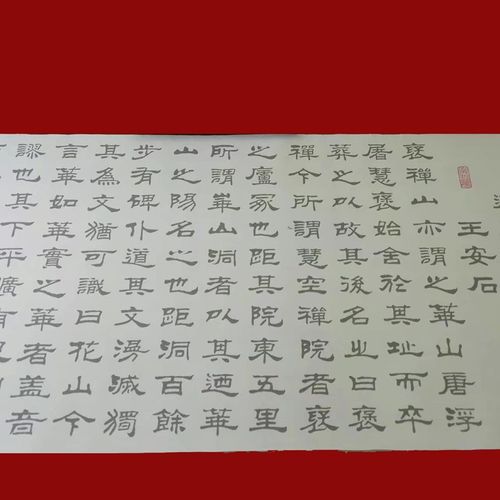 王安石
褒禪山亦謂之華山唐浮
屠慧褒始舍於其址而卒
葬之以故其後名之曰褒
禪今所謂慧空禪院者褒
之廬冢也距其院東五里
所謂華山洞者以其迺華
山之陽名之也距洞百餘
步有碑仆道其文漫滅獨
其為文猶可識曰花山今
言華如華實之華者蓋音
謬也其下平曠有